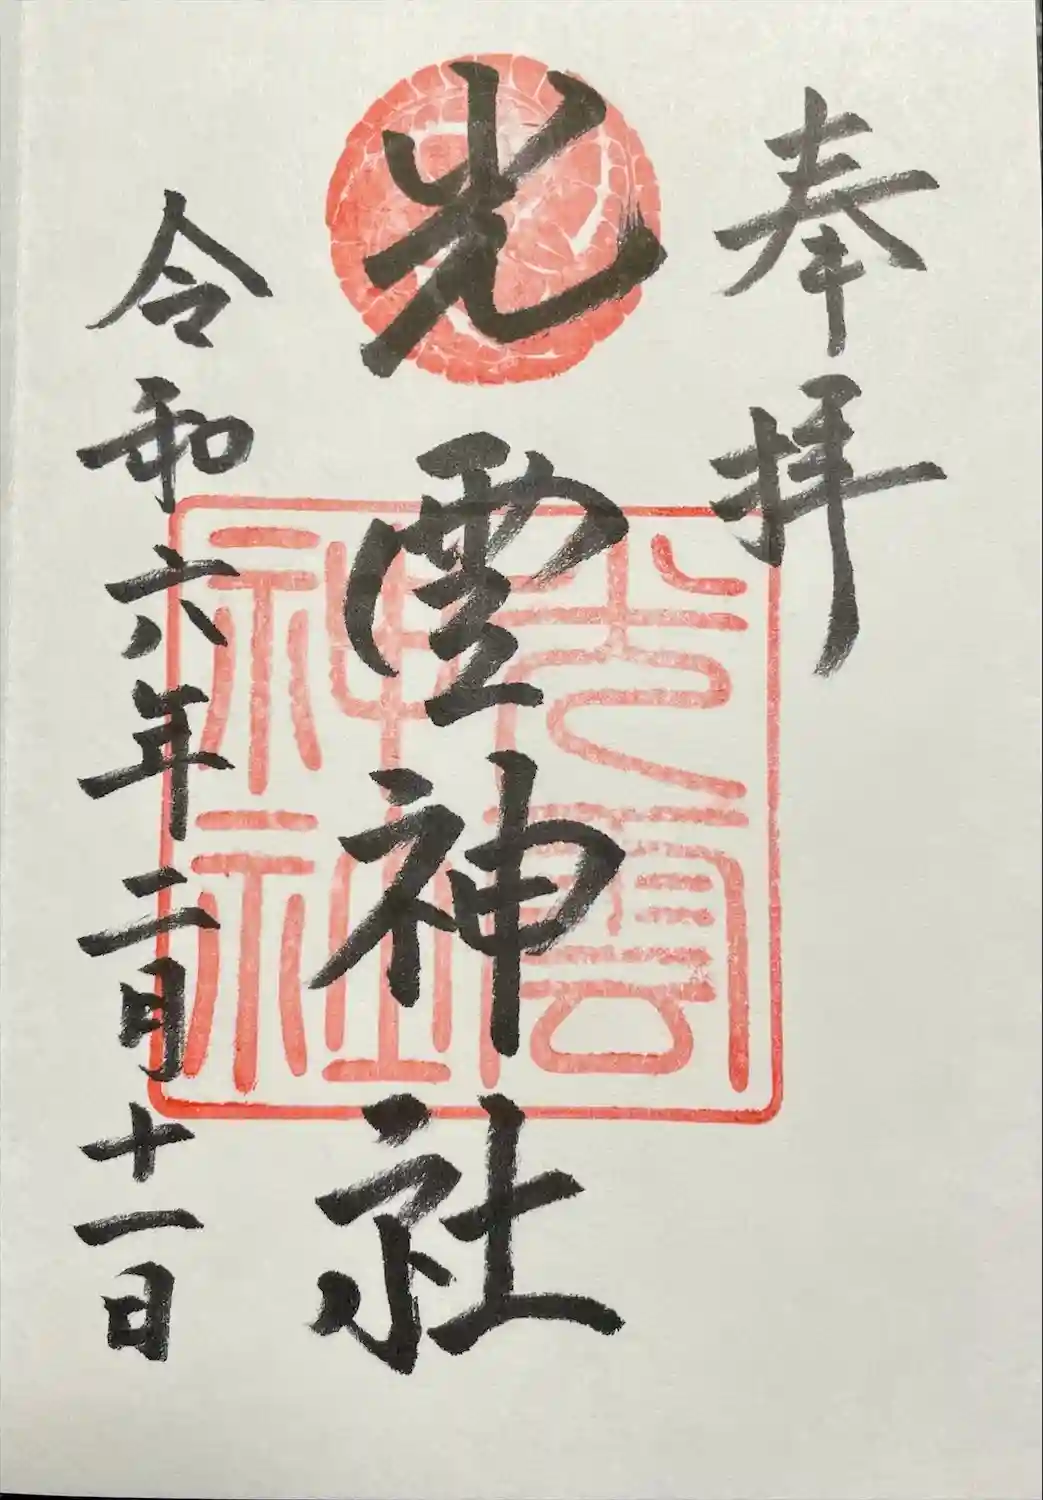 奉拝
光雲神社
光雲神社
令和六年二月十一日